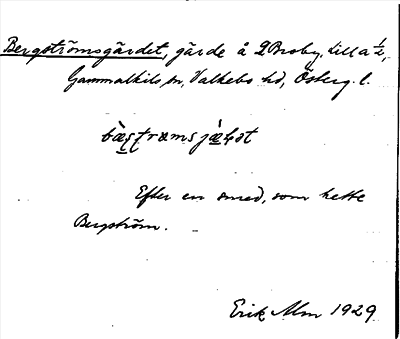 Bergströmsgärdet, gärde å 2 Broby, Lilla ½,
Gammalkils sn, Valkebo hd, Österg. l.
Efter en smed, som hette
Bergström.
Erik Alm 1929